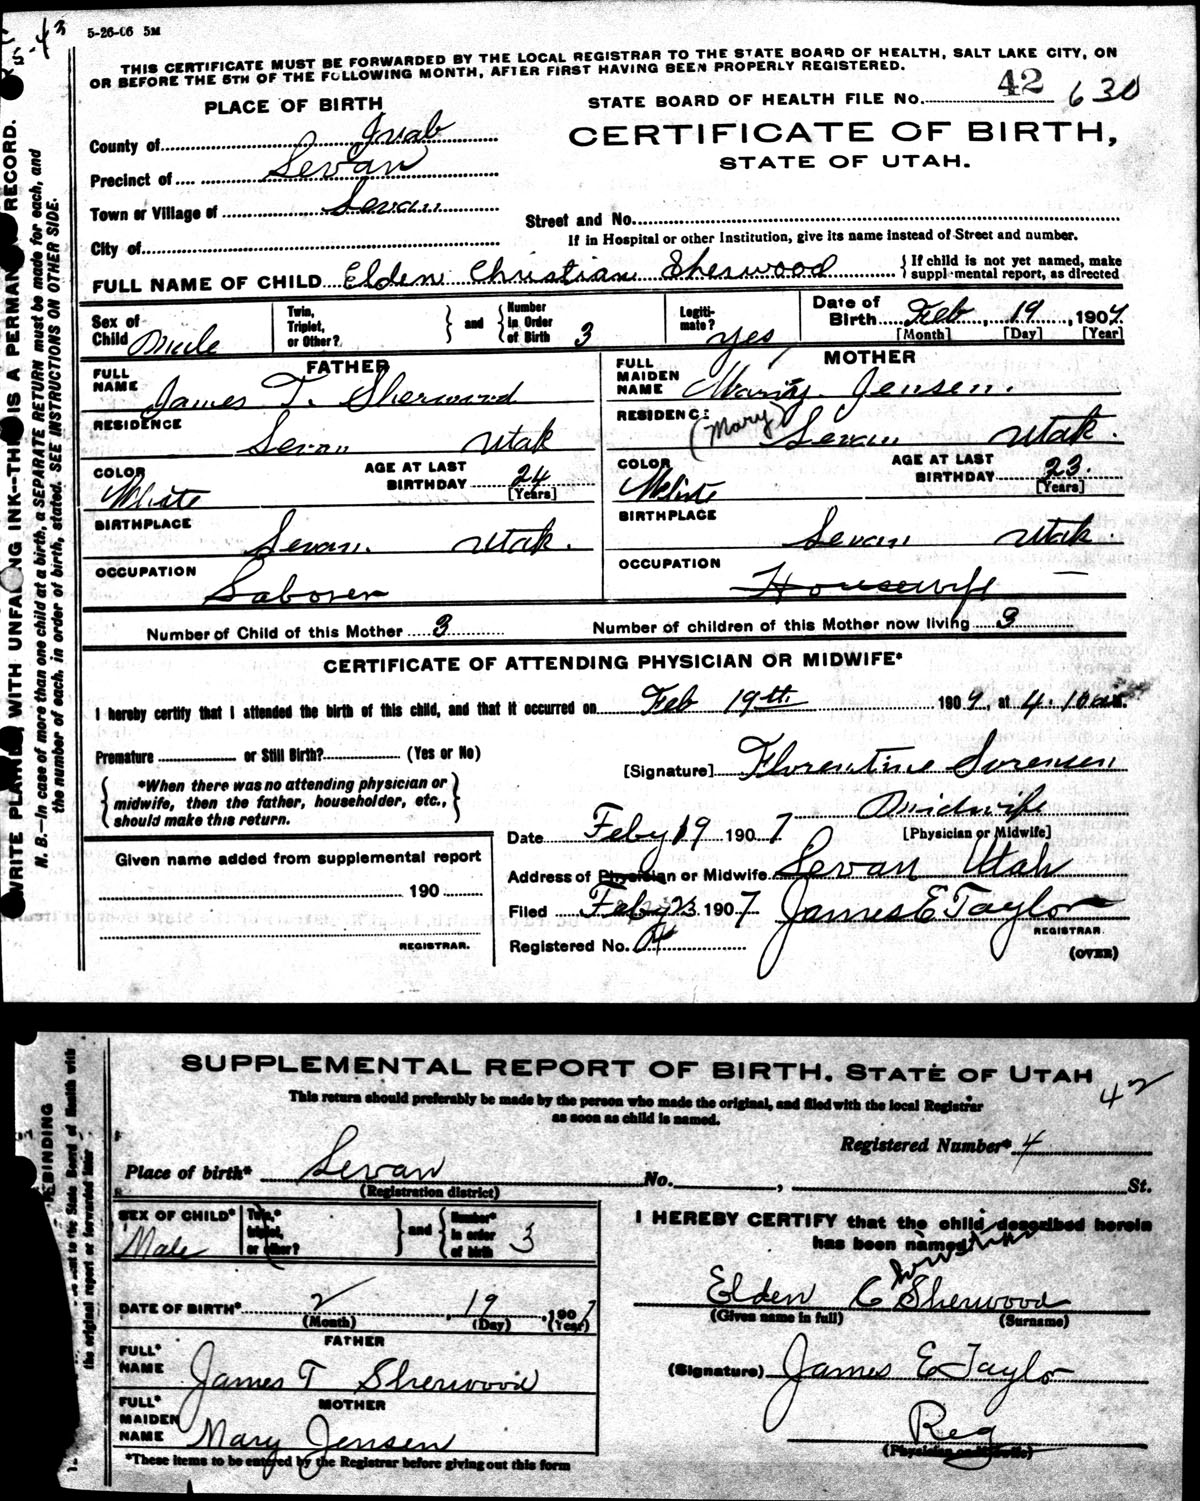 5-26-06 5M
THIS CERTIFICATE MUST BE FORWARDED BY THE LOCAL REGISTRAR TO THE STATE BOARD OF HEALTH, SALT LAKE CITY, ON
OR BEFORE THE 5TH OF THE FOLLOWING MONTH, AFTER FIRST HAVING BEEN PROPERLY REGISTERED.
WRITE PLAINLY, WITH UNFADING INK—THIS IS A PERMANENT RECORD.
N. B.—In case of more than one child at a birth, a SEPARATE RETURN must be made for each, and
the number of each, in order of birth, stated. SEE INSTRUCTIONS ON OTHER SIDE.
PLACE OF BIRTH
STATE BOARD OF HEALTH FILE No. 42 630
CERTIFICATE OF BIRTH,
STATE OF UTAH.
County of Juab
Precinct of Levan
Town or Village of Levan
City of
Street and No.
If in Hospital or other Institution, give its name instead of Street and number.
FULL NAME OF CHILD Elden Christian Sherwood { If child is not yet named, make supplemental report, as directed
Sex of Child Male
Twin, Triplet, or Other? } and { Number in Order of Birth 3
Legitimate? Yes
Date of Birth Feb, 19, 1907
[Month] [Day] [Year]
FATHER
FULL NAME James T. Sherwood
RESIDENCE Levan Utah
COLOR White AGE AT LAST BIRTHDAY 24 [Years]
BIRTHPLACE Levan. Utah.
OCCUPATION Laborer
MOTHER
FULL MAIDEN NAME Mary Jensen.
(Mary)
RESIDENCE Levan Utah.
COLOR White AGE AT LAST BIRTHDAY 23. [Years]
BIRTHPLACE Levan Utah.
OCCUPATION Housewife —
Number of Child of this Mother 3 Number of children of this Mother now living 3
CERTIFICATE OF ATTENDING PHYSICIAN OR MIDWIFE*
I hereby certify that I attended the birth of this child, and that it occurred on Feb 19th 1907, at 4.10 am.
Premature or Still Birth? (Yes or No)
{ *When there was no attending physician or midwife, then the father, householder, etc., should make this return. }
[Signature] Florentine Sorensen
Midwife
[Physician or Midwife]
Date Feby 19 1907
Given name added from supplemental report
190
REGISTRAR.
Address of Physician or Midwife Levan Utah
Filed Feby 23 1907 James E Taylor
REGISTRAR.
Registered No. 4
(OVER)
SUPPLEMENTAL REPORT OF BIRTH. STATE OF UTAH
42
This return should preferably be made by the person who made the original, and filed with the local Registrar
as soon as child is named.
Registered Number* 4
Place of birth* Levan No. , St.
(Registration district)
SEX OF CHILD* Male
Twin,* triplet, or other? } and { Number* in order of birth 3
DATE OF BIRTH* 2, 19, 1907
(Month) (Day) (Year)
FATHER
FULL* NAME James T Sherwood
MOTHER
FULL* MAIDEN NAME Mary Jensen
*These items to be entered by the Registrar before giving out this form
I HEREBY CERTIFY that the child described herein
has been named
Elden C Sherwood
(Given name in full) (Surname)
(Signature) James E Taylor
Reg
(Physician or Midwife)
BINDING
the original report or forwarded